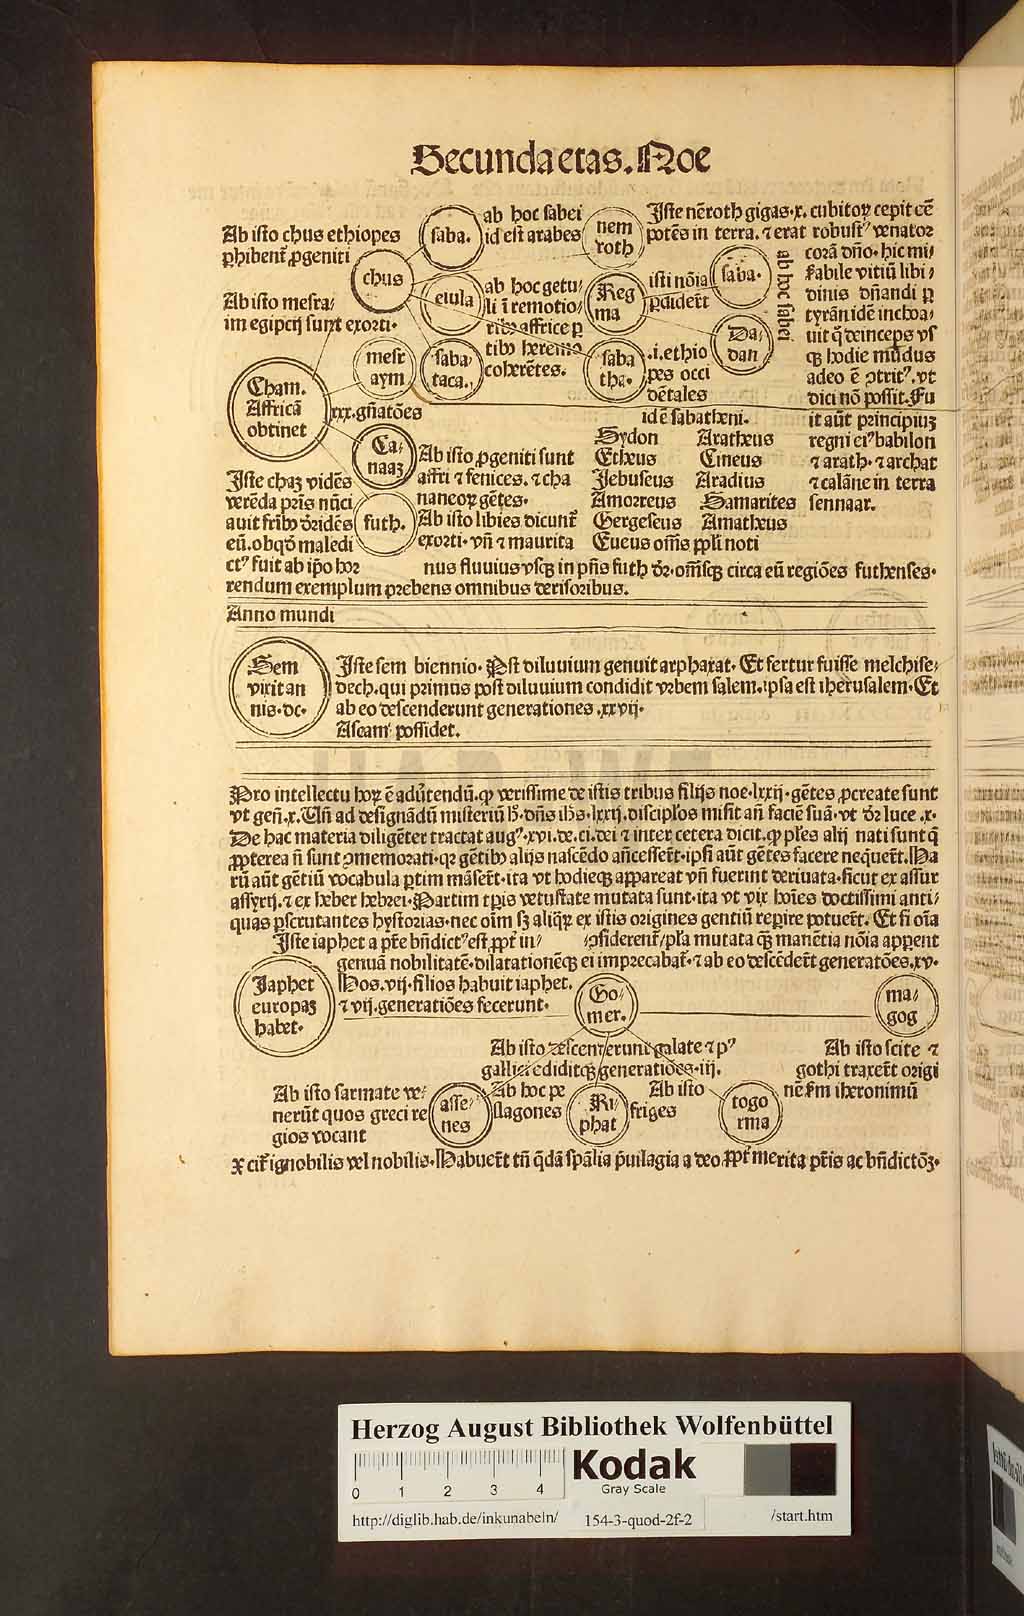 Secunda etas. Noe
Ab isto chus ethiopes
ꝓhibent᷑ ꝓgeniti
saba.
ab hoc sabei
id est arabes
nem
roth
Iste nēroth gigas .x. cubitoꝝ cepit eē
potēs in terra. ⁊ erat robustꝰ venator
corā dño. hic mi/
rabile vitiū libi/
dinis dñandi ꝑ
tyrānidē inchoa/
uit q̄ deinceps vs
qꝫ hodie mūdus
adeo ē ↄtritꝰ. vt
dici nō possit. Fu
it aūt principiuꝫ
regni eiꝰ babilon
⁊ arath. ⁊ archat
⁊ calāne in terra
sennaar.
chus
Ab isto mesra/
im egipcij sunt exorti.
eiula
ab hoc getu/
li ī remotio/
ribꝰ affrice ꝑ
tibꝰ heremo
coherētes.
Reg
ma
isti nōia
ꝑdiderūt
saba.
ab hoc sabei
Da/
dan
mesr
aym
saba
taca.
saba
tha.
.i. ethio
pes occi
dētales
idē sabatheni.
Cham.
Affricā
obtinet
xxx. gñatōes
Ca/
naaꝫ
Ab isto ꝓgeniti sunt
affri ⁊ fenices. ⁊ cha
naneoꝝ gētes.
Sydon Aratheus
Etheus Cineus
Jebuseus Aradius
Amorreus Samarites
Gergeseus Amatheus
Eueus om̄s ppl̄i noti
Iste chaꝫ vidēs
verēda pr̄is nūci
auit fribꝰ d̄ridēs
eū. ob qd̄ maledi
ctꝰ fuit ab ip̄o hoꝝ
futh.
Ab isto libies dicunt᷑
exorti. vñ ⁊ maurita
nus fluuius vsqꝫ in p̄ns futh d̄r. om̄sqꝫ circa eū regiōes futhenses.
rendum exemplum prebens omnibus derisoribus.
Anno mundi
Sem
vixit an
nis .dc.
Iste sem biennio. Pst diluuium genuit arphaxat. Et fertur fuisse melchise/
dech. qui primus post diluuium condidit vrbem salem. ipsa est iherusalem. Et
ab eo descenderunt generationes .xxvij.
Aseam possidet.
Pro intellectu hoꝝ ē adūtendū. ꝙ verissime de istis tribus filijs noe .lxxij. gētes ꝓcreate sunt
vt geñ. x. Uñ ad designādū misteriū hꝰ. dñs ihs. lxxij. disciplos misit añ faciē suā. vt d̄r luce .x.
De hac materia diligēter tractat augꝰ. xvi. de. ci. dei ⁊ inter cetera dicit. ꝙ pl̄es alij nati sunt q̄
ꝓpterea ñ sunt ↄmemorati. qꝛ gētibꝰ alijs nascēdo añcesserūt. ipsi aūt gētes facere nequerūt. Na
rū aūt gētiū vocabula ꝑtim māserūt. ita vt hodieqꝫ appareat vñ fuerint deriuata. sicut ex assur
assyrij. ⁊ ex heber hebrei. Partim tp̄is vetustate mutata sunt. ita vt vix hoīes doctissimi anti/
quas ꝑscrutantes hystorias. nec oīm sꝫ aliqꝝ ex istis origines gentiū reꝑire potuerūt. Et si oīa
Iste iaphet a pr̄e bn̄dictꝰ est ꝓpt᷑ in/ ↄsiderent᷑/ pl̄a mutata qꝫ manētia nōia apparent
genuā nobilitatē. dilatationēqꝫ ei imprecabat᷑. ⁊ ab eo descēderūt generatōes. xv.
Japhet
europaꝫ
habet.
Hos. vij. filios habuit iaphet.
⁊ vij. generatiōes fecerunt.
Go/
mer.
ma/
gog
Ab isto descenderunt galate ⁊ pꝰ
gallici ediditqꝫ generatiōes. iij.
Ab isto scite ⁊
gothi traxerūt origi
nē s̄m iheronimū
Ab isto sarmate ve/
nerūt quos greci re
gios vocant
asse/
nes
Ab hoc pe
flagones
Ri/
phat
Ab isto
friges
togo
rma
x cit᷑ ignobilis vel nobilis. Habuerūt tñ q̄dā sp̄alia p̄uilagia a deo ꝓpt᷑ merita pr̄is ac bn̄dictōꝫ.
Herzog August Bibliothek Wolfenbüttel
0 1 2 3 4
Kodak
Gray Scale
http://diglib.hab.de/inkunabeln/ 154-3-quod-2f-2 /start.htm